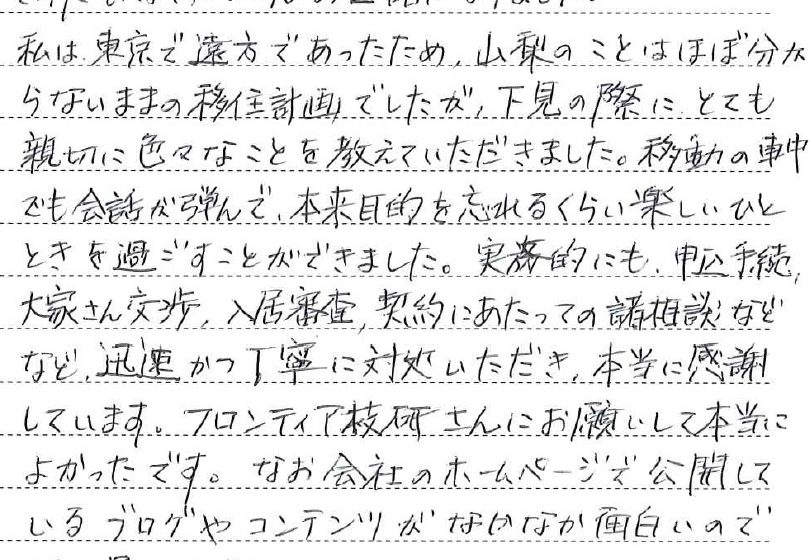 私は東京で遠方であったため、山梨のことはほぼ分か
らないままの移住計画でしたが、下見の際に、とても
親切に色々なことを教えていただきました。移動の車中
でも会話が弾んで、本来目的を忘れるくらい楽しいひと
ときを過ごすことができました。実務的にも、申込手続、
大家さん交渉、入居審査、契約にあたっての諸相談など
など、迅速かつ丁寧に対処いただき、本当に感謝
しています。フロンティア技研さんにお願いして本当に
よかったです。なお会社のホームページで公開して
いるブログやコンテンツがなかなか面白いので